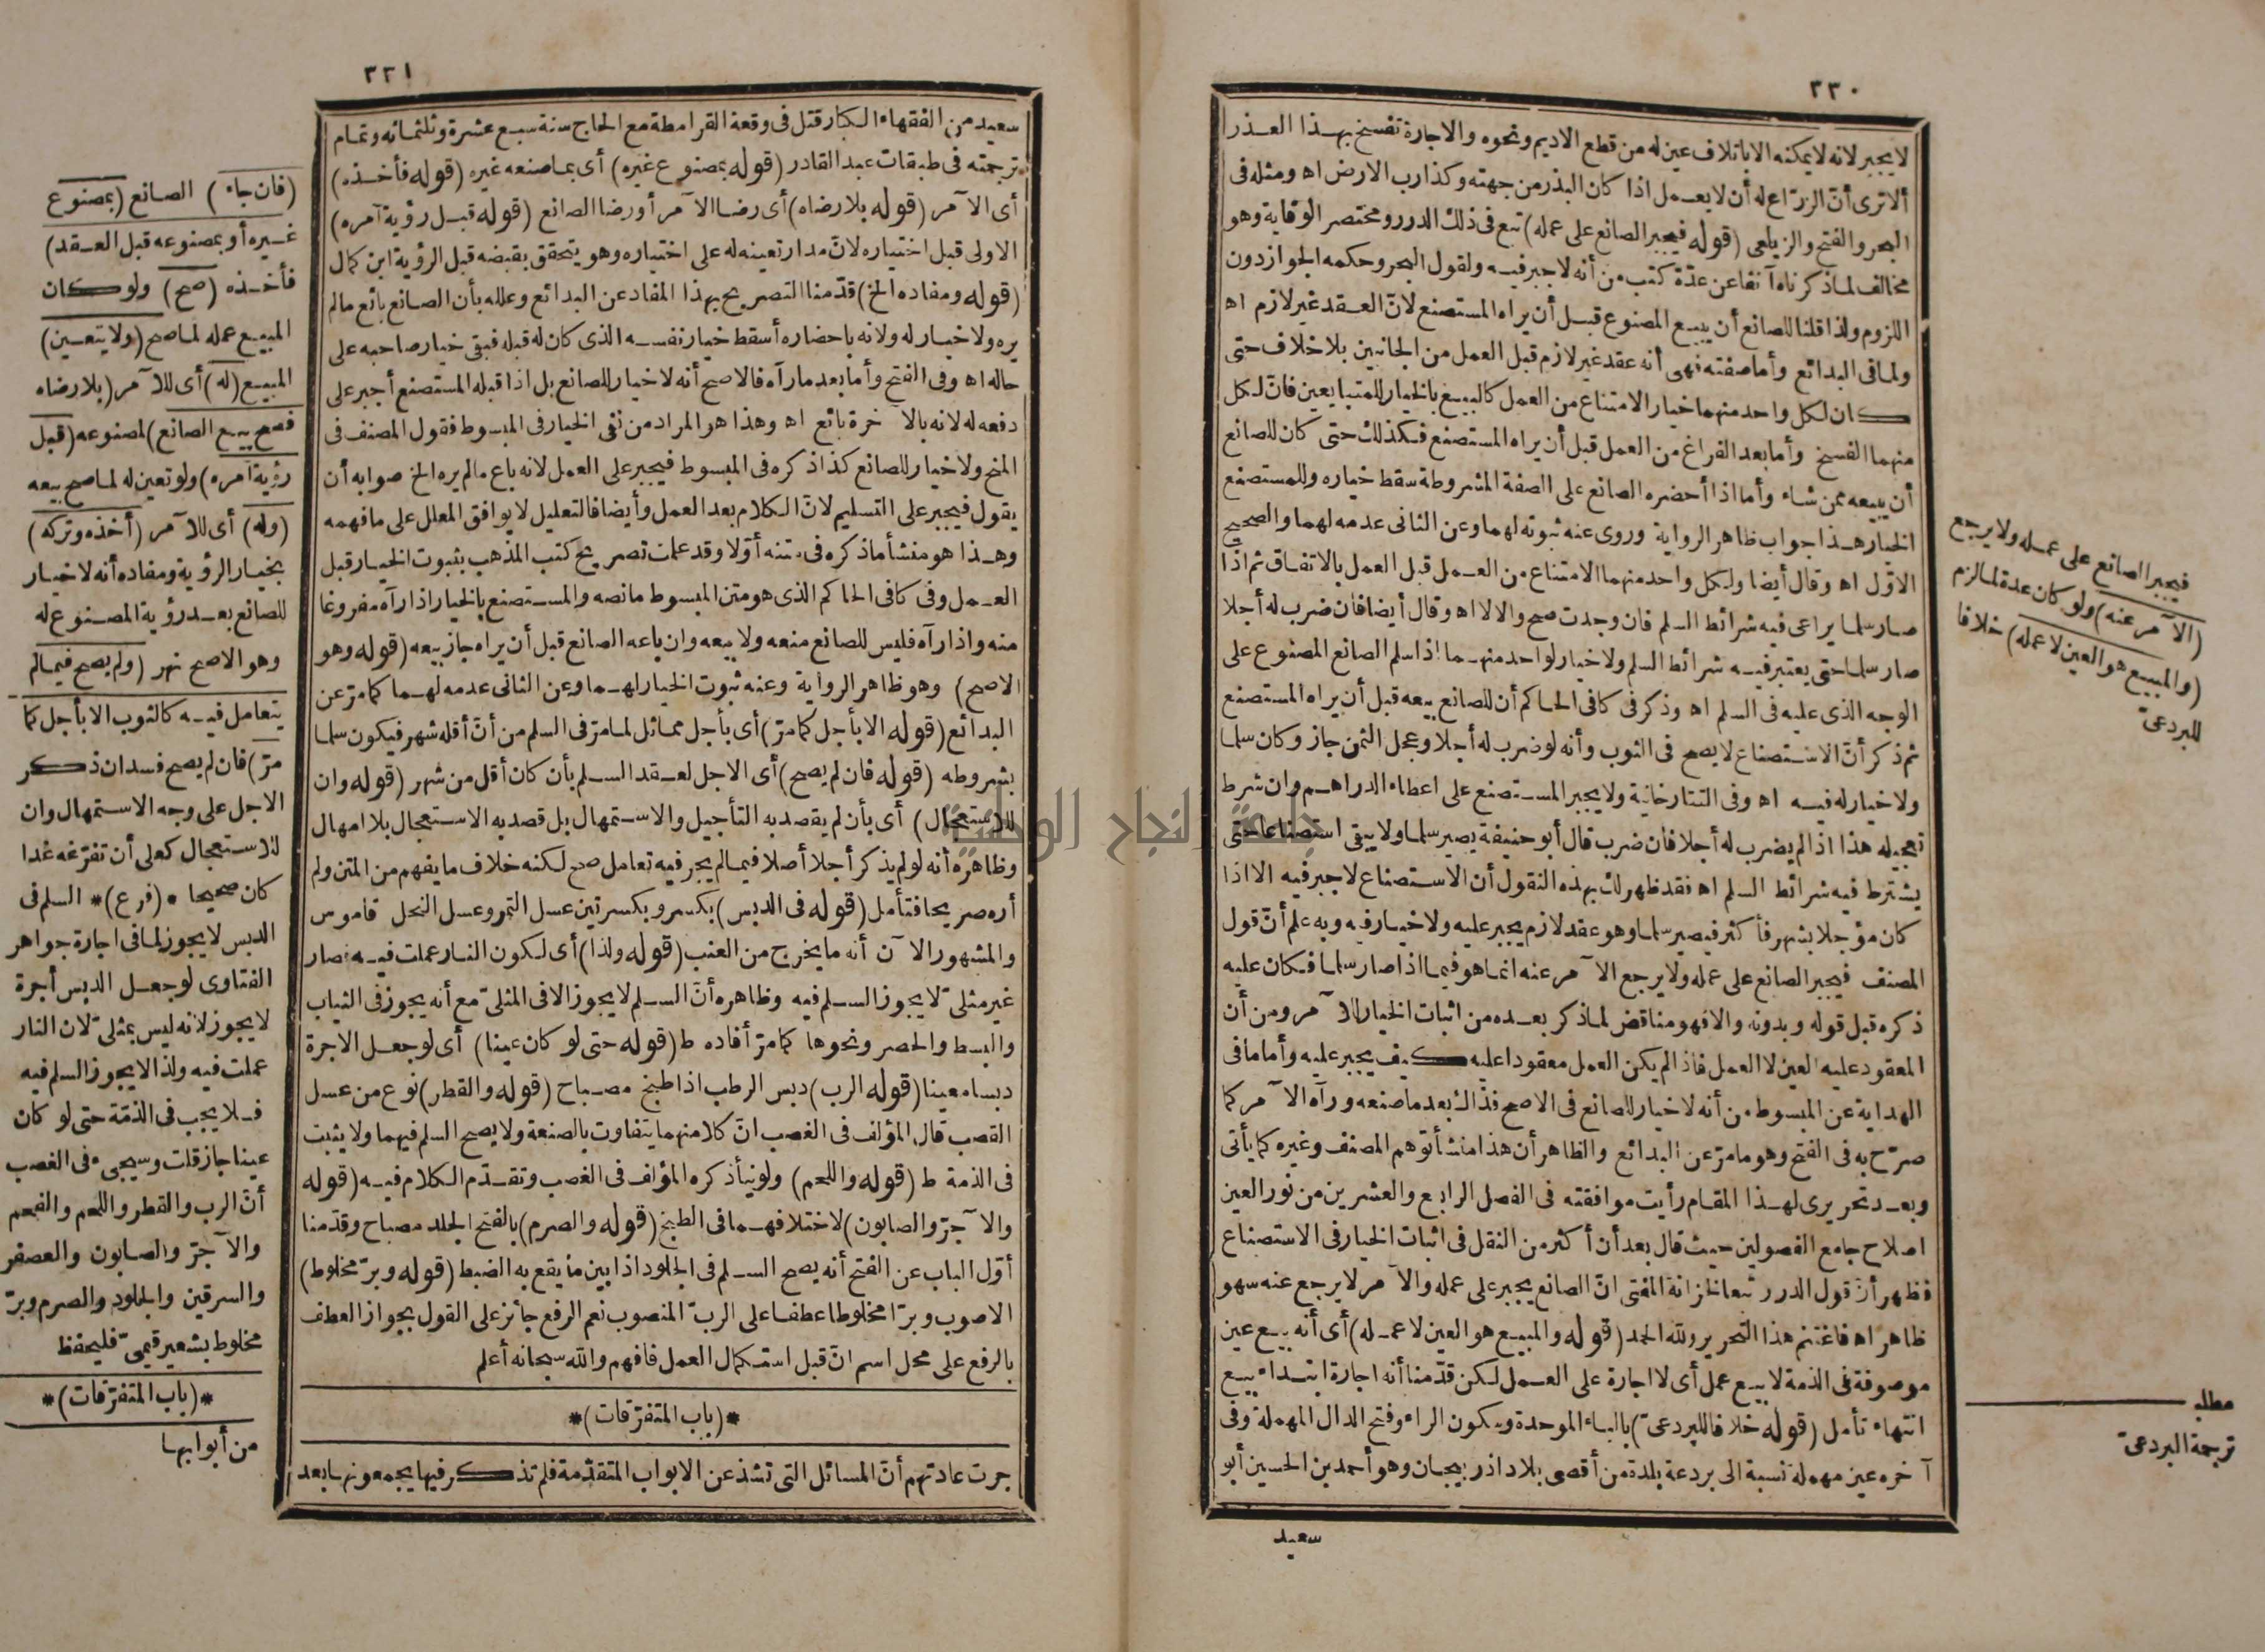 ٢٣٠
لا يجبر لانه لا يمكنه الا باتلاف عين له من قطع الاديم ونحوه والاجارة تفسخ بهذا العذر
ألا ترى أنّ الزرّاع له أن لا يعمل اذا كان البذر من جهته وكذا رب الارض اه ومثله فى
البحر والفتح والزيلعى (قوله فيجبر الصانع على عمله) تبع فى ذلك الدرر ومختصر الوقاية وهو
مخالف لما ذكرناه آنفا عن عدّة كتب من أنه لا جبر فيه ولقول البحر وحكمه الجواز دون
اللزوم ولذا قلنا للصانع أن يبيع المصنوع قبل أن يراه المستصنع لانّ العقد غير لازم اه
ولما فى البدائع وأما صفته فهى أنه عقد غير لازم قبل العمل من الجانبين بلا خلاف حتى
كان لكل واحد منهما خيار الامتناع من العمل كالبيع بالخيار للمتبايعين فانّ لكل
منهما الفسخ وأما بعد الفراغ من العمل قبل أن يراه المستصنع فكذلك حتى كان للصانع
أن يبيعه ممن شاء وأما اذا أحضره الصانع على الصفة المشروطة سقط خياره وللمستصنع
الخيار هذا جواب ظاهر الرواية وروى عنه ثبوته لهما وعن الثانى عدمه لهما والصحيح
الاوّل اه وقال أيضا ولكل واحد منهما الامتناع من العمل قبل العمل بالاتفاق ثم اذا
صار سلما يراعى فيه شرائط السلم فان وجدت صح والا لا اه وقال أيضا فان ضرب له أجلا
صار سلما حتى يعتبر فيه شرائط السلم ولا خيار لواحد منهما اذا سلم الصانع المصنوع على
الوجه الذى عليه فى السلم اه وذكر فى كافى الحاكم أن للصانع بيعه قبل أن يراه المستصنع
ثم ذكر أنّ الاستصناع لا يصح فى الثوب وأنه لو ضرب له أجلا وعجل الثمن جاز وكان سلما
ولا خيار له فيه اه وفى التتارخانية ولا يجبر المستصنع على اعطاء الدراهم وان شرط
تعجيله هذا اذا لم يضرب له أجلا فان ضرب قال أبو حنيفة يصير سلما ولا يبقى استصناعا حتى
يشترط فيه شرائط السلم اه فقد ظهر لك بهذه النقول أن الاستصناع لا جبر فيه الا اذا
كان مؤجلا بشهر فأكثر فيصير سلما وهو عقد لازم يجبر عليه ولا خيار فيه وبه علم أنّ قول
المصنف فيجبر الصانع على عمله ولا يرجع الآمر عنه انما هو فيما اذا صار سلما فكان عليه
ذكره قبل قوله وبدونه والا فهو مناقض لما ذكر بعده من اثبات الخيار للآمر ومن أن
المعقود عليه العين لا العمل فاذا لم يكن العمل معقودا عليه كيف يجبر عليه وأما ما فى
الهداية عن المبسوط من أنه لا خيار للصانع فى الاصح فذاك بعد ما صنعه ورآه الآمر كما
صرّح به فى الفتح وهو ما مرّ عن البدائع والظاهر أن هذا منشأ توهم المصنف وغيره كما يأتى
وبعد تحريرى لهذا المقام رأيت موافقته فى الفصل الرابع والعشرين من نور العين
اصلاح جامع الفصولين حيث قال بعد أن أكثر من النقل فى اثبات الخيار فى الاستصناع
فظهر أنّ قول الدرر تبعا لخزانة المفتى انّ الصانع يجبر على عمله والآمر لا يرجع عنه سهو
ظاهر اه فاغتنم هذا التحرير ولله الحمد (قوله والمبيع هو العين لا عمله) أى أنه بيع عين
موصوفة فى الذمة لا بيع عمل أى لا اجارة على العمل لكن قدّمنا أنه اجارة ابتداء بيع
انتهاء تأمل (قوله خلافا للبردعىّ) بالباء الموحدة وسكون الراء وفتح الدال المهملة وفى
آخره عين مهملة نسبة الى بردعة بلدة من أقصى بلاد اذربيجان وهو أحمد بن الحسين أبو
سعيد
فيجبر الصانع على عمله ولا يرجع
(الآمر عنه) ولو كان عدة لما لزم
(والمبيع هو العين لا عمله) خلافا
للبردعىّ
مطلب
ترجمة البردعىّ
٢٣١
سعيد من الفقهاء الكبار قتل فى وقعة القرامطة مع الحاج سنة سبع عشرة وثلثمائه وتمام
ترجمته فى طبقات عبد القادر (قوله بمصنوع غيره) أى بما صنعه غيره (قوله فأخذه)
أى الآمر (قوله بلا رضاه) أى رضا الآمر أو رضا الصانع (قوله قبل رؤية آمره)
الاولى قبل اختياره لانّ مدار تعينه له على اختياره وهو يتحقق بقبضه قبل الرؤية ابن كمال
(قوله ومفاده الخ) قدّمنا التصريح بهذا المفاد عن البدائع وعلله بأن الصانع بائع ما لم
يره ولا خيار له ولانه باحضاره أسقط خيار نفسه الذى كان له قبله فبقى خيار صاحبه على
حاله اه وفى الفتح وأما بعد ما رآه فالاصح أنه لا خيار للصانع بل اذا قبله المستصنع أجبر على
دفعه له لانه بالآخرة بائع اه وهذا هو المراد من نفى الخيار فى المبسوط فقول المصنف فى
المنح ولا خيار للصانع كذا ذكره فى المبسوط فيجبر على العمل لانه باع ما لم يره الخ صوابه أن
يقول فيجبر على التسليم لانّ الكلام بعد العمل وأيضا فالتعليل لا يوافق المعلل على ما فهمه
وهذا هو منشأ ما ذكره فى متنه أوّلا وقد علمت تصريح كتب المذهب بثبوت الخيار قبل
العمل وفى كافى الحاكم الذى هو متن المبسوط ما نصه والمستصنع بالخيار اذا رآه مفروغا
منه واذا رآه فليس للصانع منعه ولا بيعه وان باعه الصانع قبل أن يراه جاز بيعه (قوله وهو
الاصح) وهو ظاهر الرواية وعنه ثبوت الخيار لهما وعن الثانى عدمه لهما كما مرّ عن
البدائع (قوله الا بأجل كما مرّ) أى بأجل مماثل لما مرّ فى السلم من أنّ أقله شهر فيكون سلما
بشروطه (قوله فان لم يصح) أى الاجل لعقد السلم بأن كان أقل من شهر (قوله وان
للاستعجال) أى بأن لم يقصد به التأجيل والاستمهال بل قصد به الاستعجال بلا امهال
وظاهره أنه لو لم يذكر أجلا أصلا فيما لم يجر فيه تعامل صح لكنه خلاف ما يفهم من المتن ولم
أره صريحا فتأمل (قوله فى الدبس) بكسر وبكسرتين عسل التمر وعسل النحل قاموس
والمشهور الآن أنه ما يخرج من العنب (قوله ولذا) أى لكون النار عملت فيه فصار
غير مثلىّ لا يجوز السلم فيه وظاهره أنّ السلم لا يجوز الا فى المثلىّ مع أنه يجوز فى الثياب
والبسط والحصر ونحوها كما مرّ أفاده ط (قوله حتى لو كان عينا) أى لو جعل الاجرة
دبسا معينا (قوله الرب) دبس الرطب اذا طبخ مصباح (قوله والقطر) نوع من عسل
القصب قال المؤلف فى الغصب انّ كلا منهما يتفاوت بالصنعة ولا يصح السلم فيهما ولا يثبت
فى الذمة ط (قوله واللحم) ولو نيأ ذكره المؤلف فى الغصب وتقدّم الكلام فيه (قوله
والآجرّ والصابون) لاختلافهما فى الطبخ (قوله والصرم) بالفتح الجلد مصباح وقدّمنا
أوّل الباب عن الفتح أنه يصح السلم فى الجلود اذا بين ما يقع به الضبط (قوله وبرّ مخلوط)
الاصوب وبرّا مخلوطا عطفا على الربّ المنصوب نعم الرفع جائز على القول بجواز العطف
بالرفع على محل اسم انّ قبل استكمال العمل فافهم والله سبحانه أعلم
*(باب المتفرّقات)*
جرت عادتهم أنّ المسائل التى تشذ عن الابواب المتقدّمة فلم تذكر فيها يجمعونها بعد
(فان جاء) الصانع (بمصنوع
غيره أو بمصنوعه قبل العقد)
فأخذه (صح) ولو كان
المبيع عمله لما صح (ولا يتعين)
المبيع (له) أى للآمر (بلا رضاه
فصح بيع الصانع) لمصنوعه (قبل
رؤية آمره) ولو تعين له لما صح بيعه
(وله) أى للآمر (أخذه وتركه)
بخيار الرؤية ومفاده أنه لا خيار
للصانع بعد رؤية المصنوع له
وهو الاصح نهر (ولم يصح فيما لم
يتعامل فيه كالثوب الا بأجل كما
مرّ) فان لم يصح فسد ان ذكر
الاجل على وجه الاستمهال وان
للاستعجال كعلى أن تفرغه غدا
كان صحيحا *(فرع)* السلم فى
الدبس لا يجوز لما فى اجارة جواهر
الفتاوى لو جعل الدبس أجرة
لا يجوز لانه ليس بمثلىّ لان النار
عملت فيه ولذا لا يجوز السلم فيه
فلا يجب فى الذمّة حتى لو كان
عينا جاز قلت وسيجىء فى الغصب
أنّ الرب والقطر واللحم والفحم
والآجرّ والصابون والعصفر
والسرقين والجلود والصرم وبرّ
مخلوط بشعير قيمىّ فليحفظ
*(باب المتفرّقات)*
من أبوابها
جامعة النجاح الوطنية